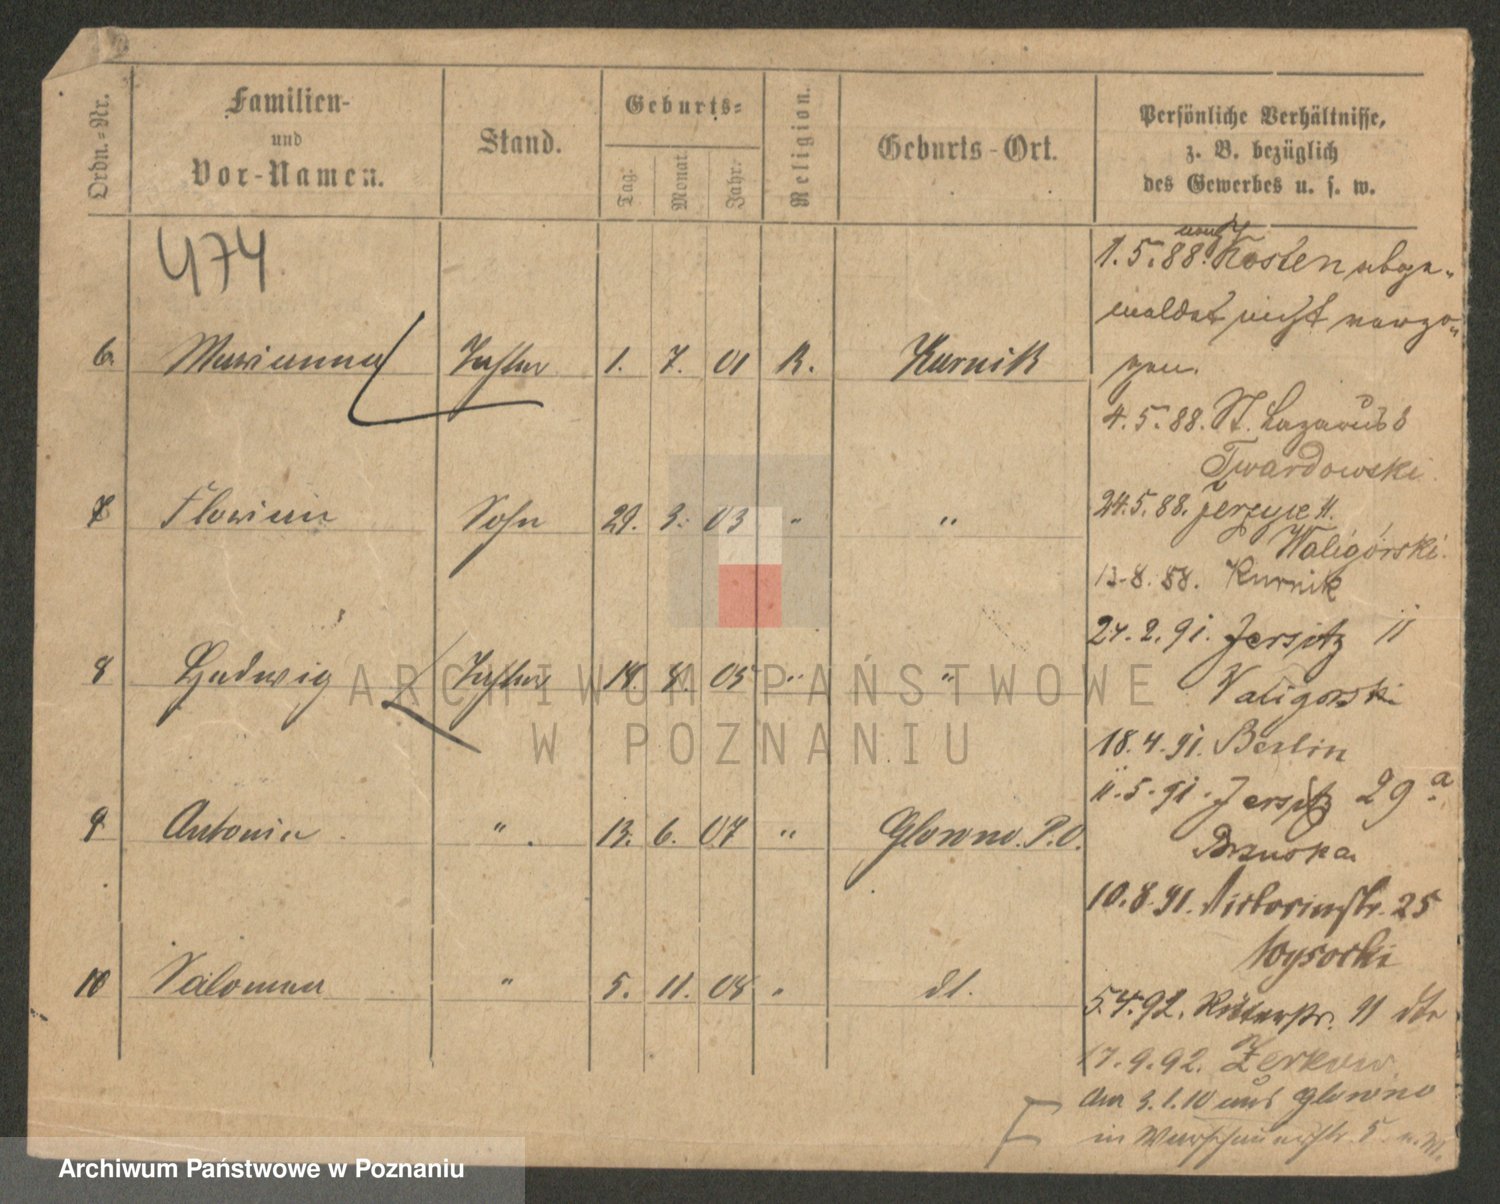 Ordn.-Nr.
Familien-
und
Vor-Namen.
Stand.
Geburts-
Tag.
Monat.
Jahr.
Religion.
Geburts-Ort.
Persönliche Verhältnisse,
z. B. bezüglich
des Gewerbes u. s. w.
474
6. Marianna Tochter 1. 7. 01 K. Kurnik
7 Florian Sohn 29. 3. 03 " "
8 Hedwig Tochter 18. 8. 05 " "
9 Antonia " 13. 6. 07 " Glowno. P.O.
10 Saloman " 5. 11. 08 " dt.
nach
1.5.88. Kosten abge-
meldet nicht verzo-
gen.
4.5.88. St. Lazarus 8
Twardowski
24.5.88. Jerzyce 11.
Waligórski.
13.8.88. Kurnik
24.2.91. Jersitz 11
Waligorski
18.4.91. Berlin
11.5.91. Jersitz 29a.
Bruska
10.8.91. Victoriastr. 25
Wysocki
5.4.92. Ritterstr. 11
17.9.92. Zerkow
Am 3.1.10 aus Glowno
in Warschauerstr. 5
ARCHIWUM PAŃSTWOWE
W POZNANIU
Archiwum Państwowe w Poznaniu